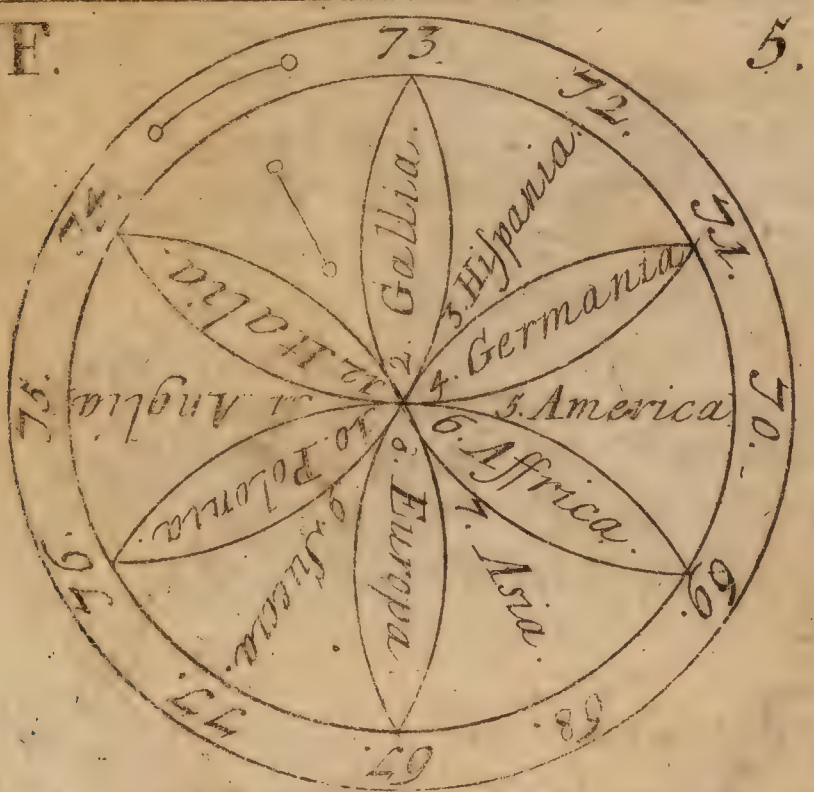 F.
5.
73
72.
71.
70.
69.
68.
67.
77.
76
75.
74.
2. Gallia.
3. Hiſpania.
4. Germania
5. America
6. Affrica.
7. Asia.
8. Europa.
9. Suecia.
10. Polonia.
11 Anglia
12. Italia.